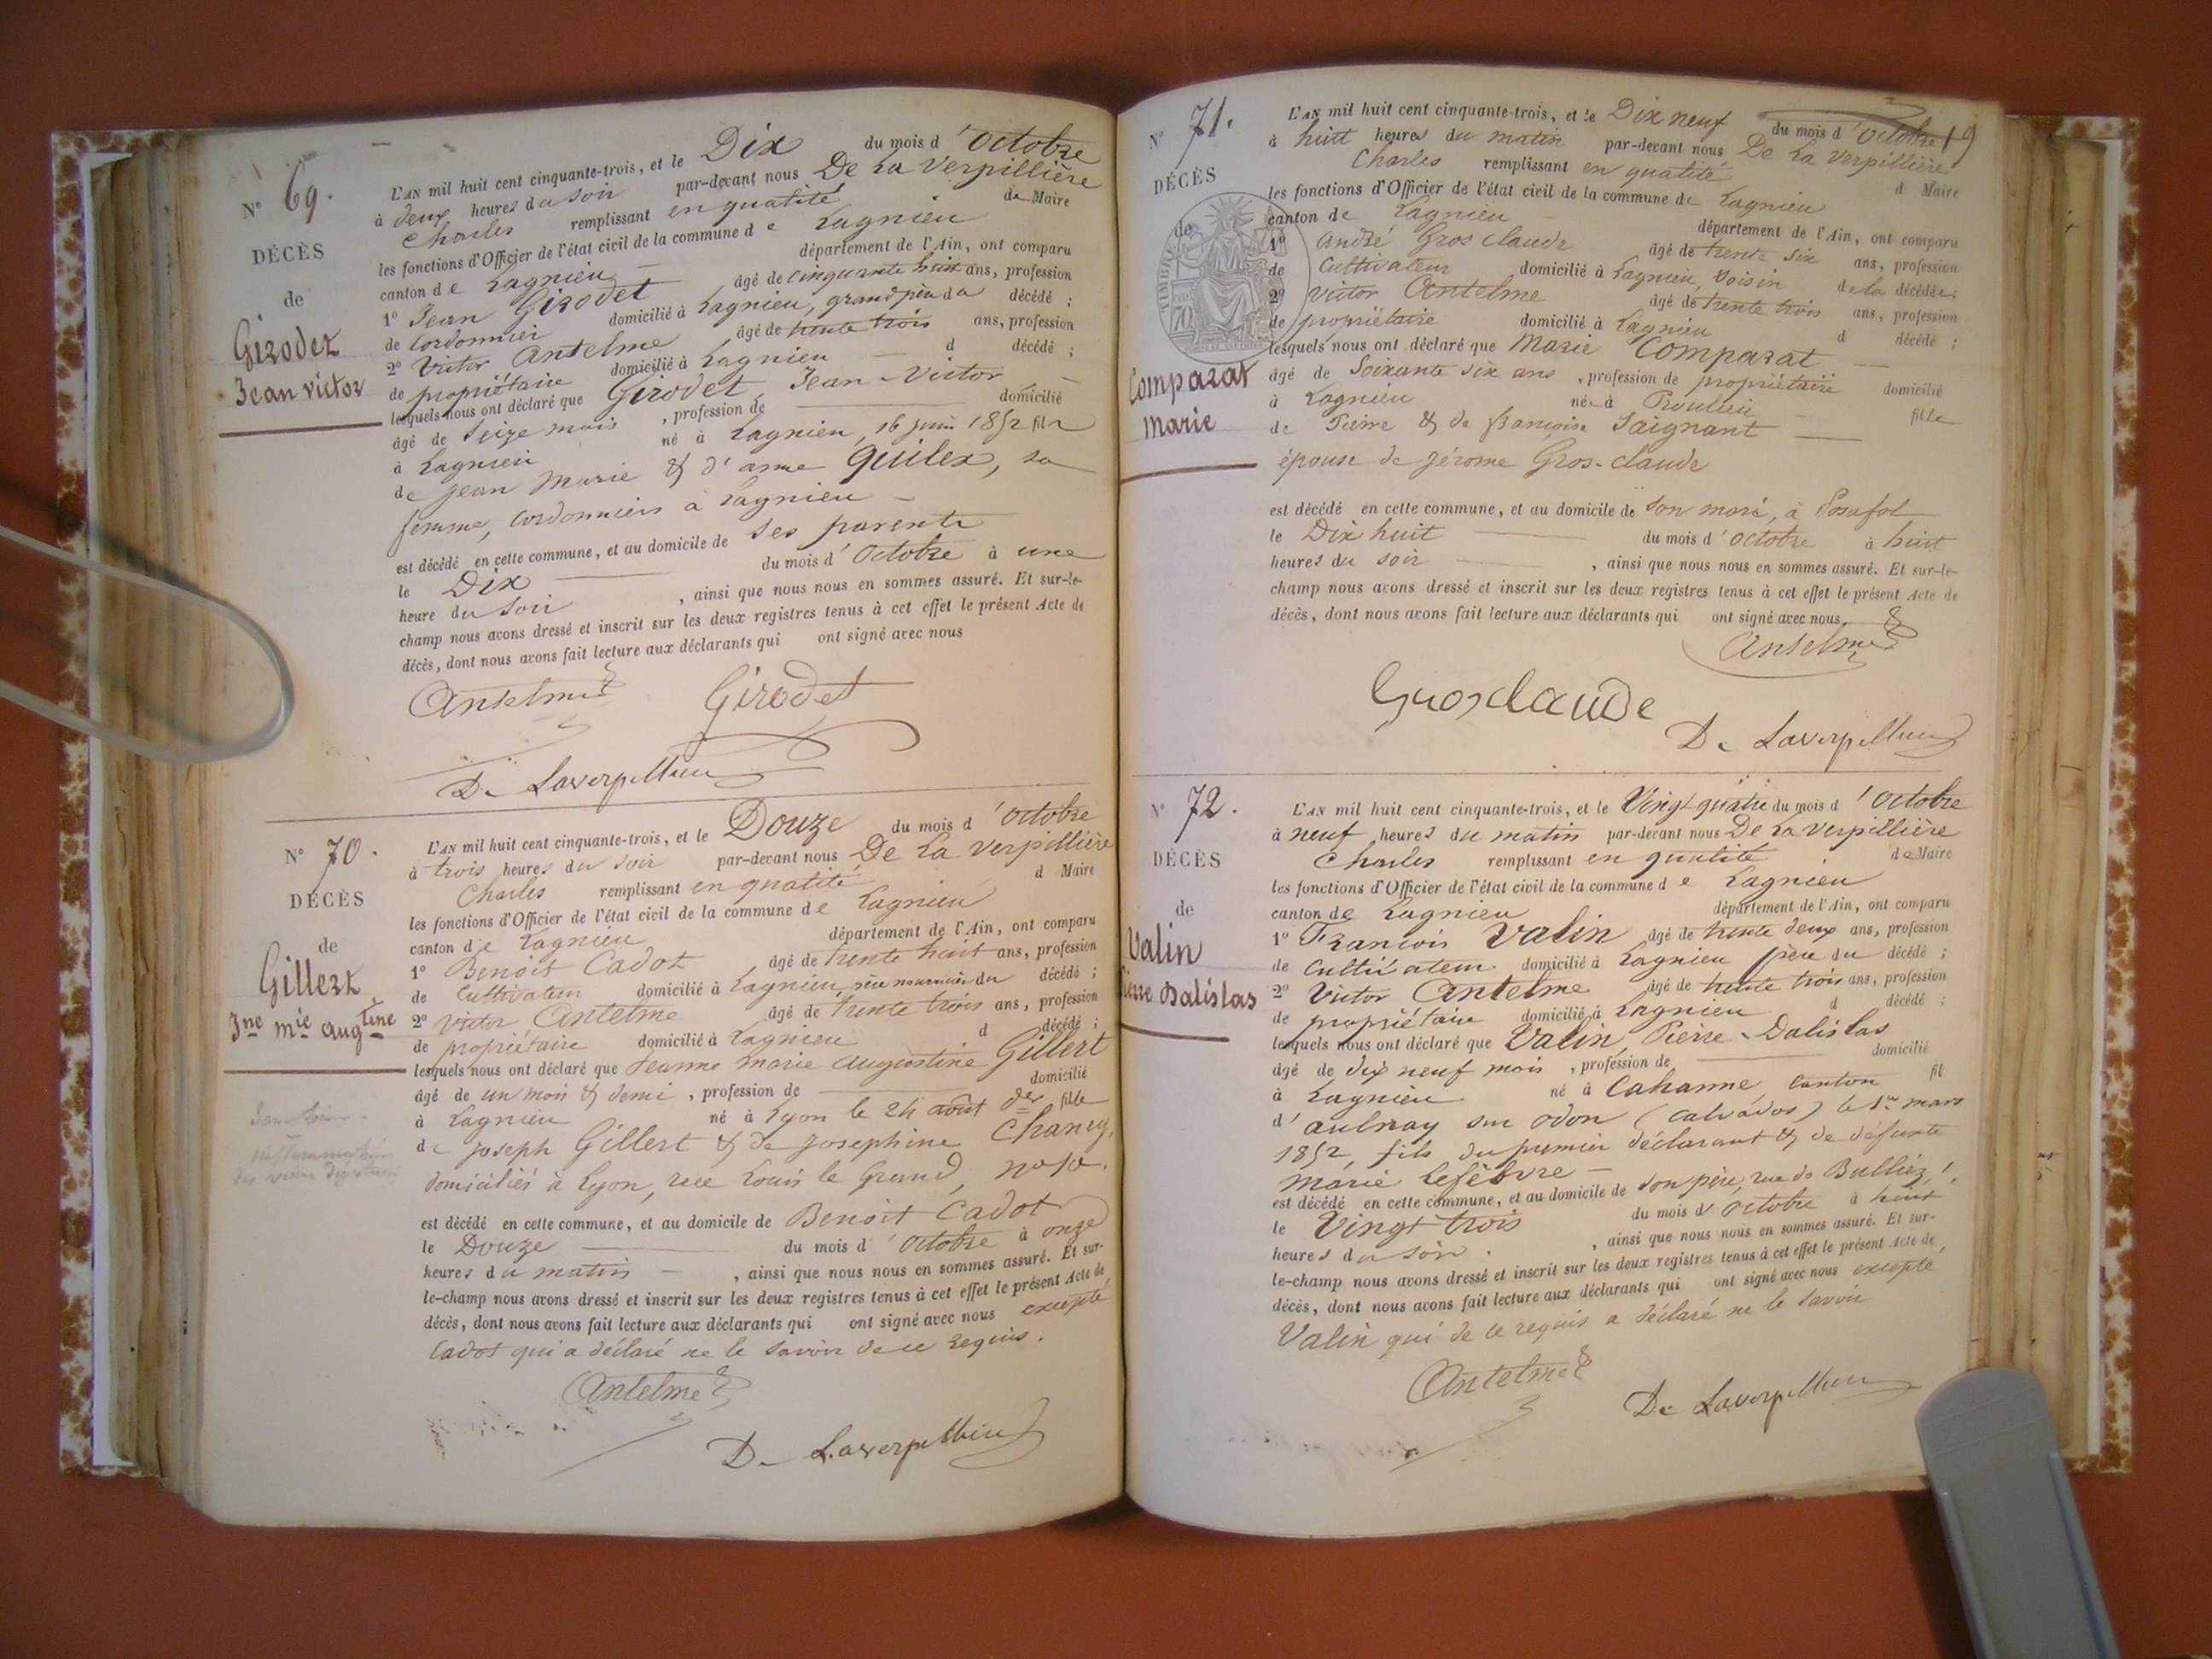 N° 69.
DÉCÈS
de
Girodet
Jean victor
L'AN mil huit cent cinquante-trois, et le Dix du mois d'Octobre
à deux heures du soir par-devant nous De La Verpillière
Charles remplissant en qualité de Maire
les fonctions d'Officier de l'état civil de la commune de Lagnieu
canton de Lagnieu département de l'Ain, ont comparu
1° Jean Girodet âgé de cinquante huit ans, profession
de cordonnier domicilié à Lagnieu, grand père du décédé ;
2° Victor Antelme âgé de trente trois ans, profession
de propriétaire domicilié à Lagnieu d décédé ;
lesquels nous ont déclaré que Girodet, Jean-Victor
âgé de seize mois, profession de domicilié
à Lagnieu né à Lagnieu, 16 juin 1852 fils
de Jean Marie & d'anne Guilex, sa
femme, cordonniers à Lagnieu
est décédé en cette commune, et au domicile de ses parents
le Dix du mois d'Octobre à une
heure du soir, ainsi que nous nous en sommes assuré. Et sur-le-
champ nous avons dressé et inscrit sur les deux registres tenus à cet effet le présent Acte de
décès, dont nous avons fait lecture aux déclarants qui ont signé avec nous
Antelme Girodet
De Laverpillière
N° 70.
DÉCÈS
de
Gillert
Jne mie augtine
L'AN mil huit cent cinquante-trois, et le Douze du mois d'Octobre
à trois heures du soir par-devant nous De La Verpillière
Charles remplissant en qualité d Maire
les fonctions d'Officier de l'état civil de la commune de Lagnieu
canton de Lagnieu département de l'Ain, ont comparu
1° Benoit Cadot âgé de trente huit ans, profession
de Cultivateur domicilié à Lagnieu, père nourricier du décédé ;
2° Victor Antelme âgé de trente trois ans, profession
de propriétaire domicilié à Lagnieu d décédé ;
lesquels nous ont déclaré que Jeanne Marie Augustine Gillert
âgé de un mois & demi, profession de domicilié
à Lagnieu né à Lyon le 24 août der fille
de Joseph Gillert & de Josephine Chancy,
domiciliés à Lyon, rue Louis le Grand, n° 10.
est décédé en cette commune, et au domicile de Benoit Cadot
le Douze du mois d'Octobre à onze
heures du matin, ainsi que nous nous en sommes assuré. Et sur-
le-champ nous avons dressé et inscrit sur les deux registres tenus à cet effet le présent Acte de
décès, dont nous avons fait lecture aux déclarants qui ont signé avec nous excepté
Cadot qui a déclaré ne le savoir de ce requis.
Antelme
De Laverpillière
19
N° 71.
DÉCÈS
de
TIMBRE
70
Comparat
Marie
L'AN mil huit cent cinquante-trois, et le Dix neuf du mois d'Octobre
à huit heures du matin par-devant nous De La Verpillière
Charles remplissant en qualité d Maire
les fonctions d'Officier de l'état civil de la commune de Lagnieu
canton de Lagnieu département de l'Ain, ont comparu
1° André Gros claude âgé de trente six ans, profession
de Cultivateur domicilié à Lagnieu, voisin de la décédée ;
2° Victor Antelme âgé de trente trois ans, profession
de propriétaire domicilié à Lagnieu d décédé ;
lesquels nous ont déclaré que Marie Comparat
âgé de Soixante six ans, profession de propriétaire domicilié
à Lagnieu née à Proulieu fille
de Pierre & de françoise Saignant
épouse de Jérome Gros-claude
est décédé en cette commune, et au domicile de son mari, à Posafol
le Dix huit du mois d'Octobre à huit
heures du soir, ainsi que nous nous en sommes assuré. Et sur-le-
champ nous avons dressé et inscrit sur les deux registres tenus à cet effet le présent Acte de
décès, dont nous avons fait lecture aux déclarants qui ont signé avec nous.
Antelme
Grosclaude
De Laverpillière
N° 72.
DÉCÈS
de
Valin
Pierre Dalislas
L'AN mil huit cent cinquante-trois, et le Vingt quatre du mois d'Octobre
à neuf heures du matin par-devant nous De La Verpillière
Charles remplissant en qualité de Maire
les fonctions d'Officier de l'état civil de la commune de Lagnieu
canton de Lagnieu département de l'Ain, ont comparu
1° François Valin âgé de trente deux ans, profession
de Cultivateur domicilié à Lagnieu père du décédé ;
2° Victor Antelme âgé de trente trois ans, profession
de propriétaire domicilié à Lagnieu d décédé ;
lesquels nous ont déclaré que Valin, Pierre-Dalislas
âgé de dix neuf mois, profession de domicilié
à Lagnieu né à Cahanne canton fil
d'aulnay sur odon (calvados) le 1er mars
1852, fils du premier déclarant & de défunte
Marie Lefèbvre
est décédé en cette commune, et au domicile de son père, rue de Bulliez,
le Vingt trois du mois d'Octobre à huit
heures du soir. , ainsi que nous nous en sommes assuré. Et sur-
le-champ nous avons dressé et inscrit sur les deux registres tenus à cet effet le présent Acte de
décès, dont nous avons fait lecture aux déclarants qui ont signé avec nous excepté
Valin qui de ce requis a déclaré ne le savoir
Antelme
De Laverpillière